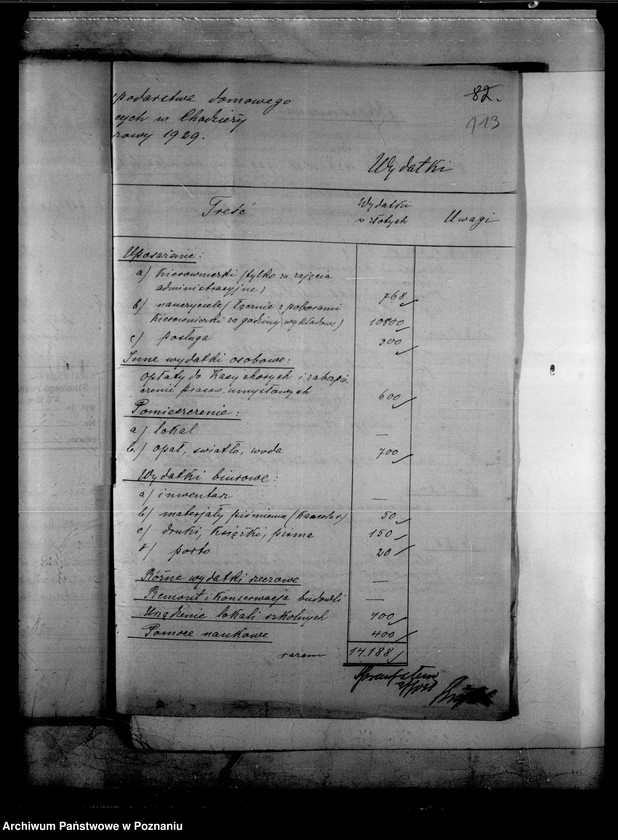 podarstwa domowego
82.
cych w Chodzieży
113
rowy 1929.
Wydatki
Treść
Wydatki w złotych
Uwagi
Uposażenie:
a) Kierowniczki (tylko za zajęcia
administracyjne) 768
b) nauczyciele (łącznie z poborami
kierowniczki za godziny wykładowe) 10800
c) posługa 300
Inne wydatki osobowe:
opłaty do Kasy chorych i zabezpie
czenie pracow. umysłowych 600
Pomieszczenie:
a) lokal —
b) opał, światło, woda 700
Wydatki biurowe:
a) inwentarz —
b) materjały piśmienne (kancelar) 50
c) druki, książki, pisma 150
d) porto 20
Różne wydatki rzeczowe —
Remont i konserwacja budowli —
Urządzenie lokali szkolnych 400
Pomoce naukowe 400
razem
Archiwum Państwowe w Poznaniu